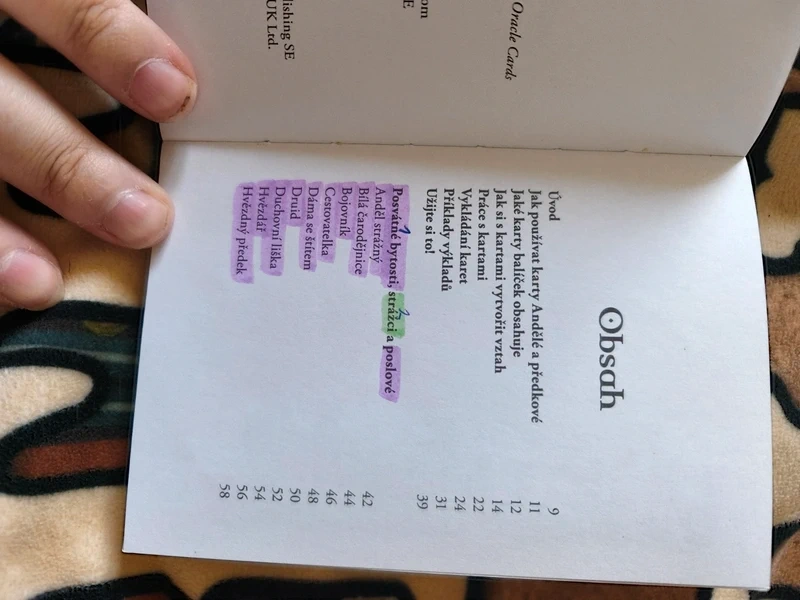 Oracle Cards
om
E
lishing SE
UK Ltd.
Obsah
Úvod 9
Jak používat karty Andělé a předkové 11
Jaké karty balíček obsahuje 12
Jak si s kartami vytvořit vztah 14
Práce s kartami 22
Vykládání karet 24
Příklady výkladů 31
Užijte si to! 39
1 2
Posvátné bytosti, strážci a poslové
Anděl strážný 42
Bílá čarodějnice 44
Bojovník 46
Cestovatelka 48
Dáma se štítem 50
Druid 52
Duchovní liška 54
Hvězdář 56
Hvězdný předek 58